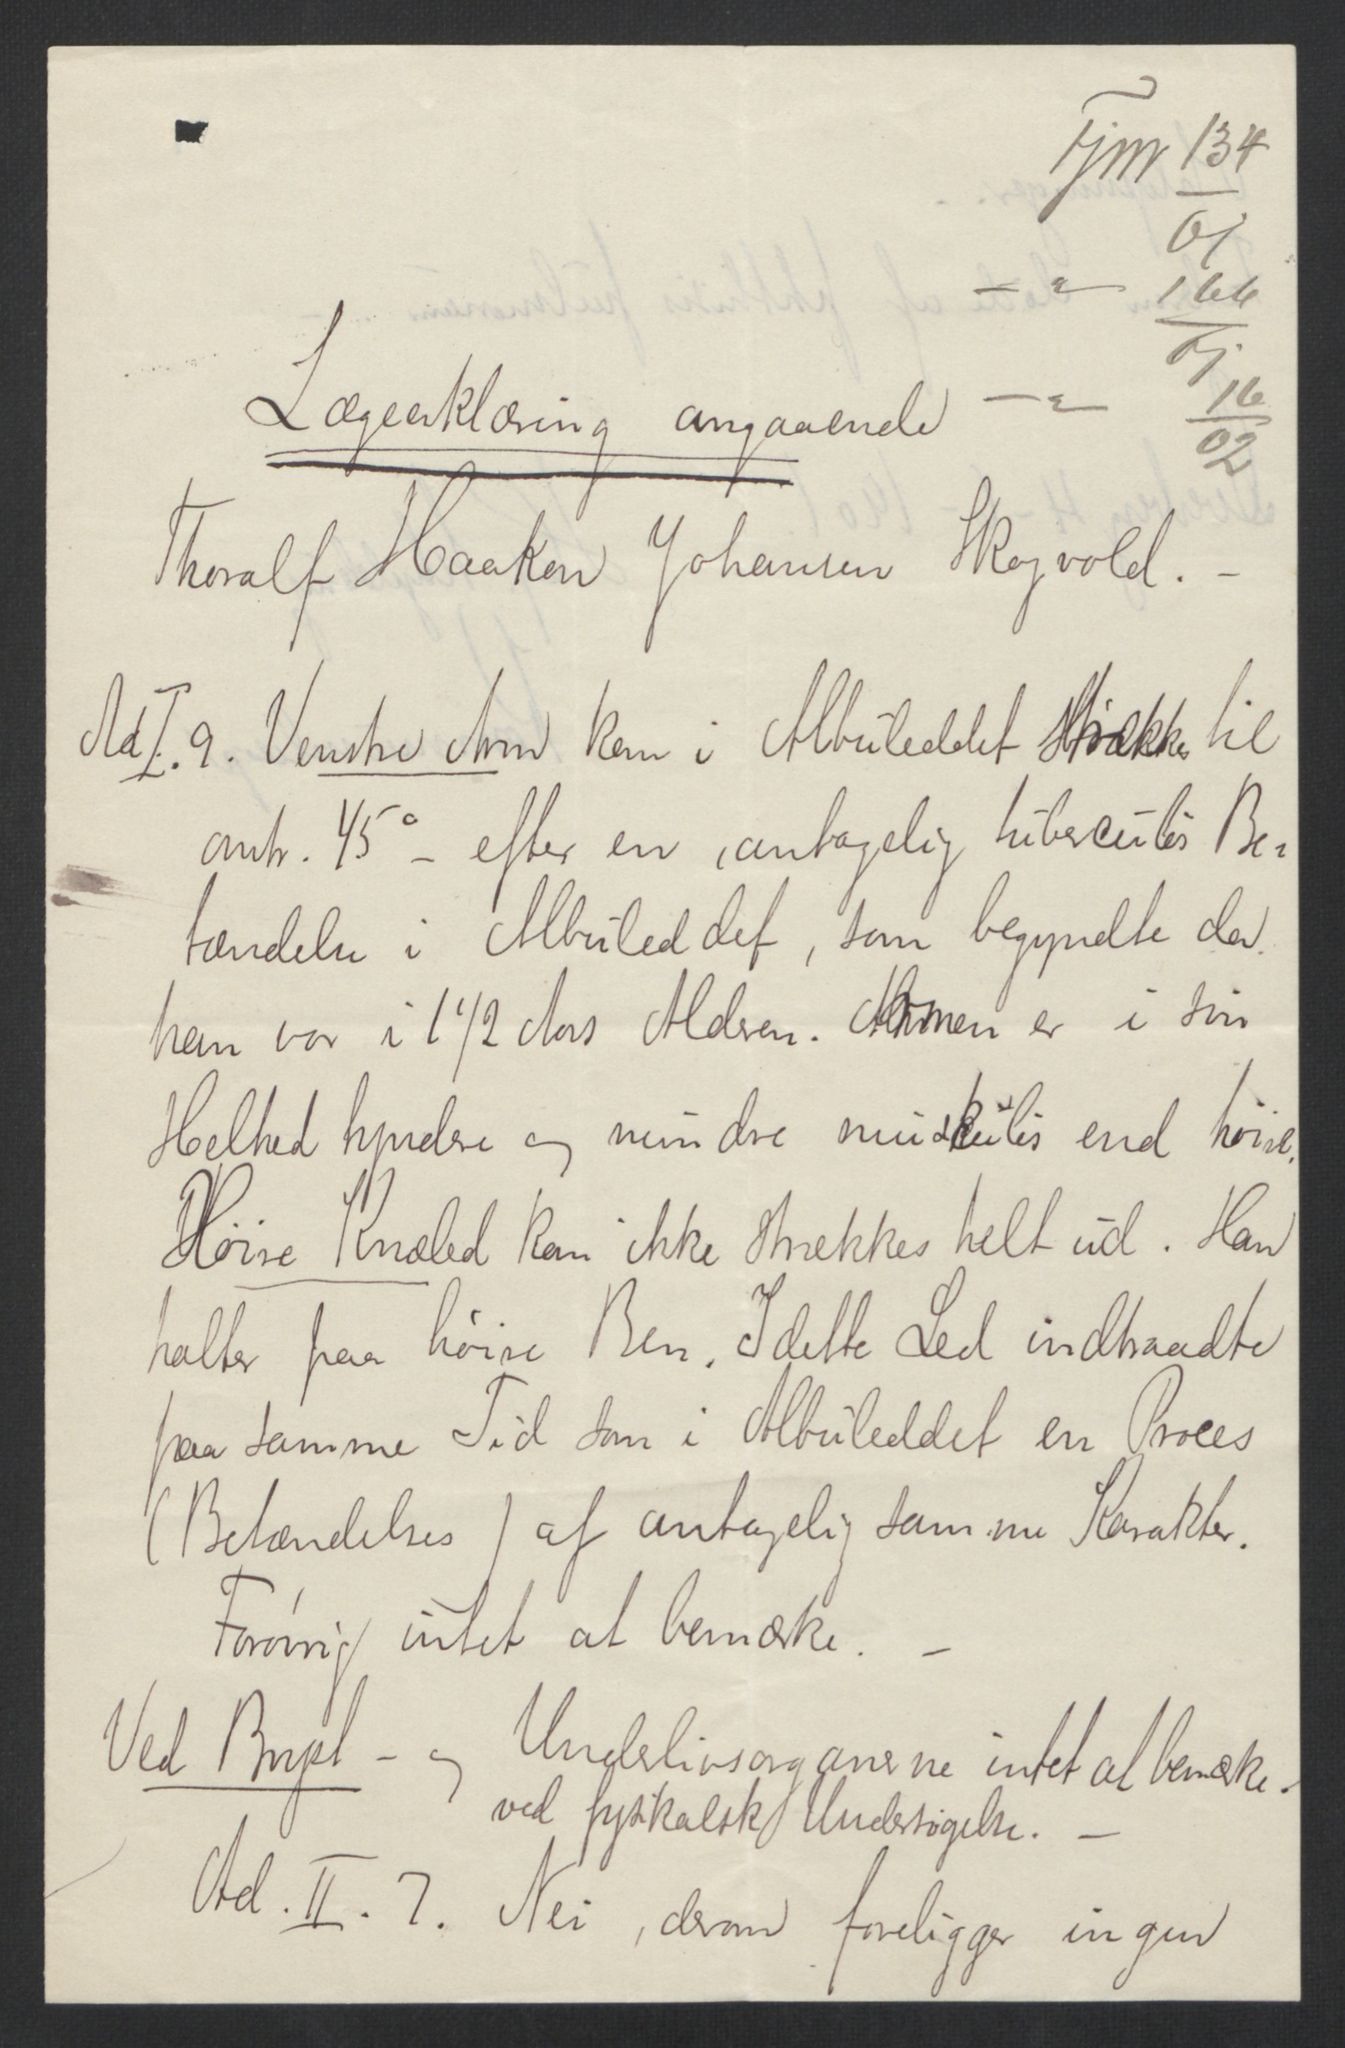 Fjm 134
01
— " — 166
01
— " — 16
02
Lægeerklæring angaaende
Thoralf Haakon Johansen Skogvold. –
Ad I. 9. Venstre Arm kan i Albuleddet strækkes til
omtr. 45° – efter en, antagelig tuberculøs Be-
tændelse i Albuleddet, som begyndte da
han var i 1 1/2 Aars Alderen. Armen er i sin
Helhed tyndere og mindre muskuløs end høire.
Høire Knæled kan ikke strækkes helt ud. Han
halter paa høire Ben. I dette Led indtraadte
paa samme Tid som i Albuleddet en Proces
(Betændelses) af antagelig samme Karakter.
Forøvrig intet at bemærke. –
Ved Bryst – og Underlivsorganerne intet at bemærke
ved fysikalsk Undersøgelse. –
Ad. II. 7. Nei, derom foreligger ingen